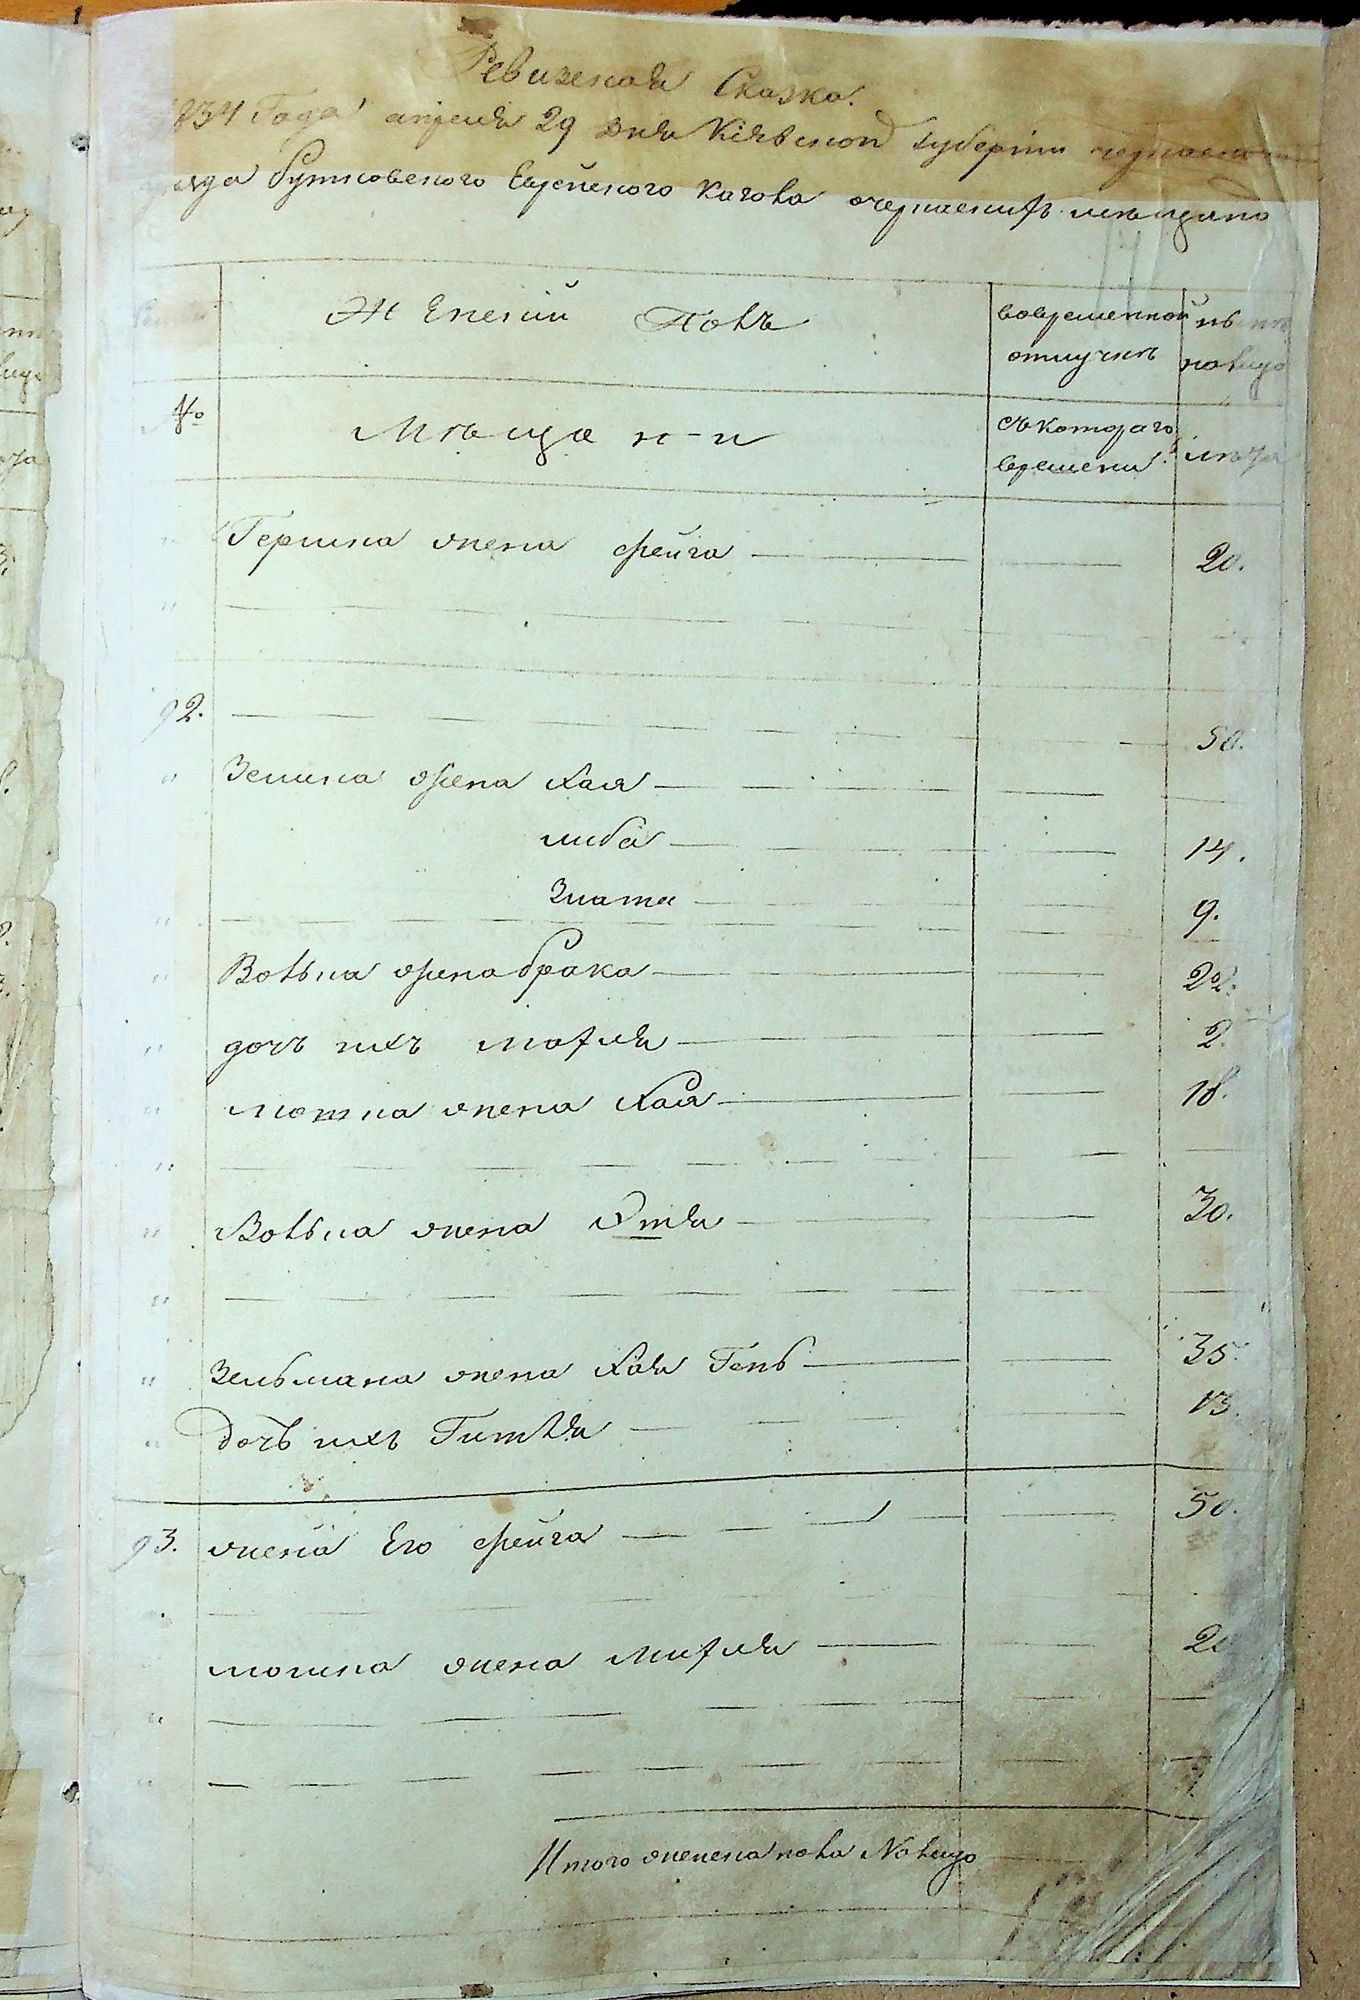 Ревизская Сказка.
1834 Года апреля 29 дня Киевской губернии черкаскаго
уезда Еврейского Кагала о черкаскихъ мещанъ
Женский Полъ
во временной
отлучке
на лицо
№
Мещанки
съ котораго
времени
лета
Гершка жена фейга 20.
92.
50.
Зелика жена Хая
либа 14.
Злата 9.
Волька жена брака 22.
дочь ихъ махля 2.
мошка жена Хая 18.
Волька жена Этля 30.
Зельмана жена Хая Гень 35.
Дочь ихъ Гитля 13.
93. жена Его фейга 50.
мошка жена михля 20
Итого женска пола На лицо